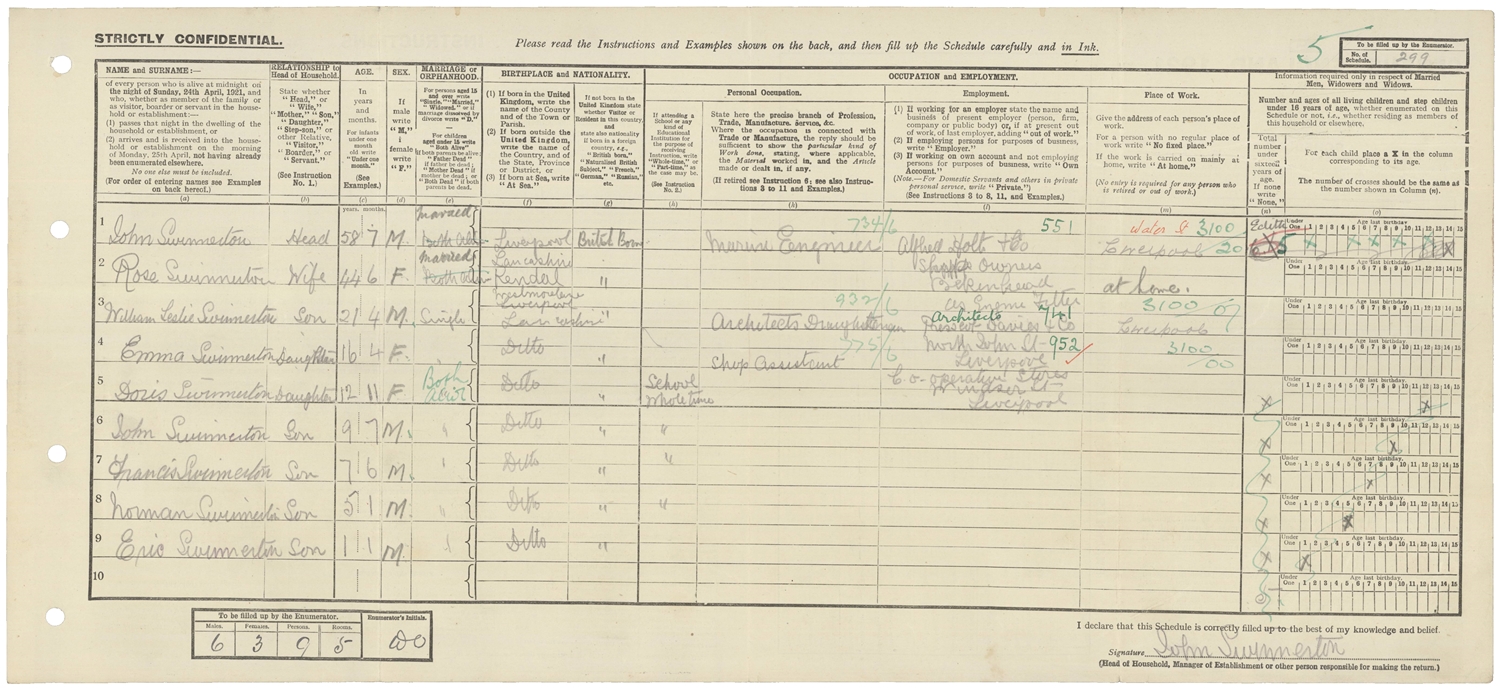 STRICTLY CONFIDENTIAL.
Please read the Instructions and Examples shown on the back, and then fill up the Schedule carefully and in Ink.
5
To be filled up by the Enumerator.
No. of Schedule. 299
NAME AND SURNAME:—
of every person who is alive at midnight on
the night of Sunday, 24th April, 1921, and
who, whether as member of the family or
as visitor, boarder or servant in the house-
hold or establishment:—
(1) passes that night in the dwelling of the
household or establishment, or
(2) arrives and is received into the house-
hold or establishment on the morning
of Monday, 25th April, not having already
been enumerated elsewhere.
No one else must be included.
(For order of entering names see Examples
on back hereof.)
(a)
RELATIONSHIP to
Head of Household.
State whether
"Head," or
"Wife,"
"Mother," "Son,"
"Daughter,"
"Step-son," or
other Relative,
"Visitor,"
"Boarder," or
"Servant."
(See Instruction
No. 1.)
(b)
AGE.
In
years
and
months.
For infants
under one
month old
write
"Under one
month."
(See
Examples.)
(c)
SEX.
If
male
write
"M,"
if
female
write
"F."
(d)
MARRIAGE or
ORPHANHOOD.
For persons aged 15
and over write
"Single," "Married,"
"Widowed," or if
marriage dissolved by
divorce write "D."
For children
aged under 15 write
"Both Alive" if
both parents be alive;
"Father Dead" if
father be dead;
"Mother Dead" if
mother be dead; or
"Both Dead" if both
parents be dead.
(e)
BIRTHPLACE and NATIONALITY.
(1) If born in the United
Kingdom, write the
name of the County
and of the Town or
Parish.
(2) If born outside the
United Kingdom,
write the name of
the Country, and of
the State, Province
or District, or
(3) If born at Sea, write
"At Sea."
(f)
If not born in the
United Kingdom state
whether Visitor or
Resident in this country,
and
state also nationality
if born in a foreign
country, e.g.,
"British born,"
"Naturalised British
Subject," "French,"
"German," "Russian,"
etc.
(g)
OCCUPATION and EMPLOYMENT.
If attending a
School or any
kind of
Educational
Institution for the
purpose of
receiving
Instruction, write
"Whole-time," or
"Part-time," as
the case may be.
(See Instruction
No. 2.)
(h)
Personal Occupation.
State here the precise branch of Profession,
Trade, Manufacture, Service, &c.
Where the occupation is connected with
Trade or Manufacture, the reply should be
sufficient to show the particular kind of
Work done, stating, where applicable,
the Material worked in, and the Article
made or dealt in, if any.
(If retired see Instruction 6; see also Instruc-
tions 3 to 11 and Examples.)
(k)
Employment.
(1) If working for an employer state the name and
business of present employer (person, firm,
company or public body) or, if at present out
of work, of last employer, adding "out of work."
(2) If employing persons for purposes of business,
write "Employer."
(3) If working on own account and not employing
persons for purposes of business, write "Own
Account."
(Note.—For Domestic Servants and others in private
personal service, write "Private.")
(See Instructions 3 to 8, 11, and Examples.)
(l)
Place of Work.
Give the address of each person's place of
work.
For a person with no regular place of
work write "No fixed place."
If the work is carried on mainly at
home, write "At home."
(No entry is required for any person who
is retired or out of work.)
(m)
Information required only in respect of Married
Men, Widowers and Widows.
Number and ages of all living children and step children
under 16 years of age, whether enumerated on this
Schedule or not, i.e., whether residing as members of
this household or elsewhere.
Total
number
under
sixteen
years of
age.
If none
write
"None."
(n)
For each child place a X in the column
corresponding to its age.
The number of crosses should be the same as
the number shown in Column (n).
(o)
years. months.
1 John Swinnerton Head 58 7 M. Married Liverpool Lancashire British Born Marine Engineer 734/6 Alfred Holt & Co Ships Owners Birkenhead 551 Water St 3100 Liverpool 20 5
2 Rose Swinnerton Wife 44 6 F. Married Kendal Westmoreland " at home.
3 William Leslie Swinnerton Son 21 4 M. Single Liverpool Lancashire " 932/6 Architects Draughtsman Architects 741 North John St Liverpool 3100 Liverpool
4 Emma Swinnerton Daughter 16 4 F. Ditto " 775/6 Shop Assistant 952 Co-operative Stores Windsor St Liverpool 3100 00
5 Doris Swinnerton Daughter 12 11 F Both alive Ditto " School Whole time X X
6 John Swinnerton Son 9 7 M. " Ditto " " X X
7 Francis Swinnerton Son 7 6 M. " Ditto " " X X
8 Norman Swinnerton Son 5 1 M. " Ditto " " X X
9 Eric Swinnerton Son 1 1 M. " Ditto " X X
10
Under One 1 2 3 4 5 6 7 8 9 10 11 12 13 14 15
Age last birthday.
To be filled up by the Enumerator.
Males. Females. Persons. Rooms.
6 3 9 5
Enumerator's Initials.
DO
I declare that this Schedule is correctly filled up to the best of my knowledge and belief.
Signature John Swinnerton
(Head of Household, Manager of Establishment or other person responsible for making the return.)